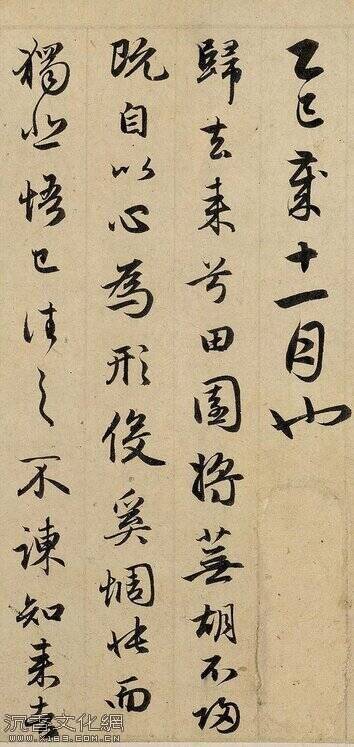 乙巳歲十一月也
歸去來兮田園將蕪胡不歸
既自以心為形役奚惆悵而
獨悲悟已往之不諫知來者
沉香文化網